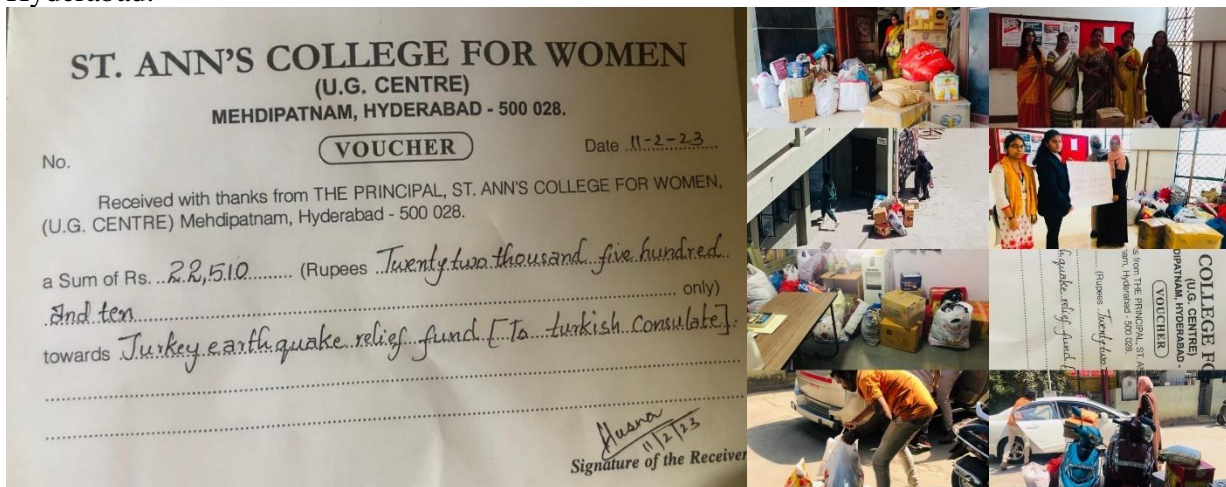 Hyderabad.
ST. ANN'S COLLEGE FOR WOMEN
(U.G. CENTRE)
MEHDIPATNAM, HYDERABAD - 500 028.
No.
VOUCHER
Date 11-2-23
Received with thanks from THE PRINCIPAL, ST. ANN'S COLLEGE FOR WOMEN,
(U.G. CENTRE) Mehdipatnam, Hyderabad - 500 028.
a Sum of Rs. 22,510 (Rupees Twenty two thousand five hundred
And ten only)
towards Turkey earth quake relief fund [To turkish Consulate].
Husna
11/2/23
Signature of the Receiver
COLLEGE FO
(U.G. CENTRE)
DIPATNAM, HYDERABAD -
VOUCHER
s from THE PRINCIPAL, ST. A
nam, Hyderabad - 500 028.
(Rupees Twenty two
quake relief fund [